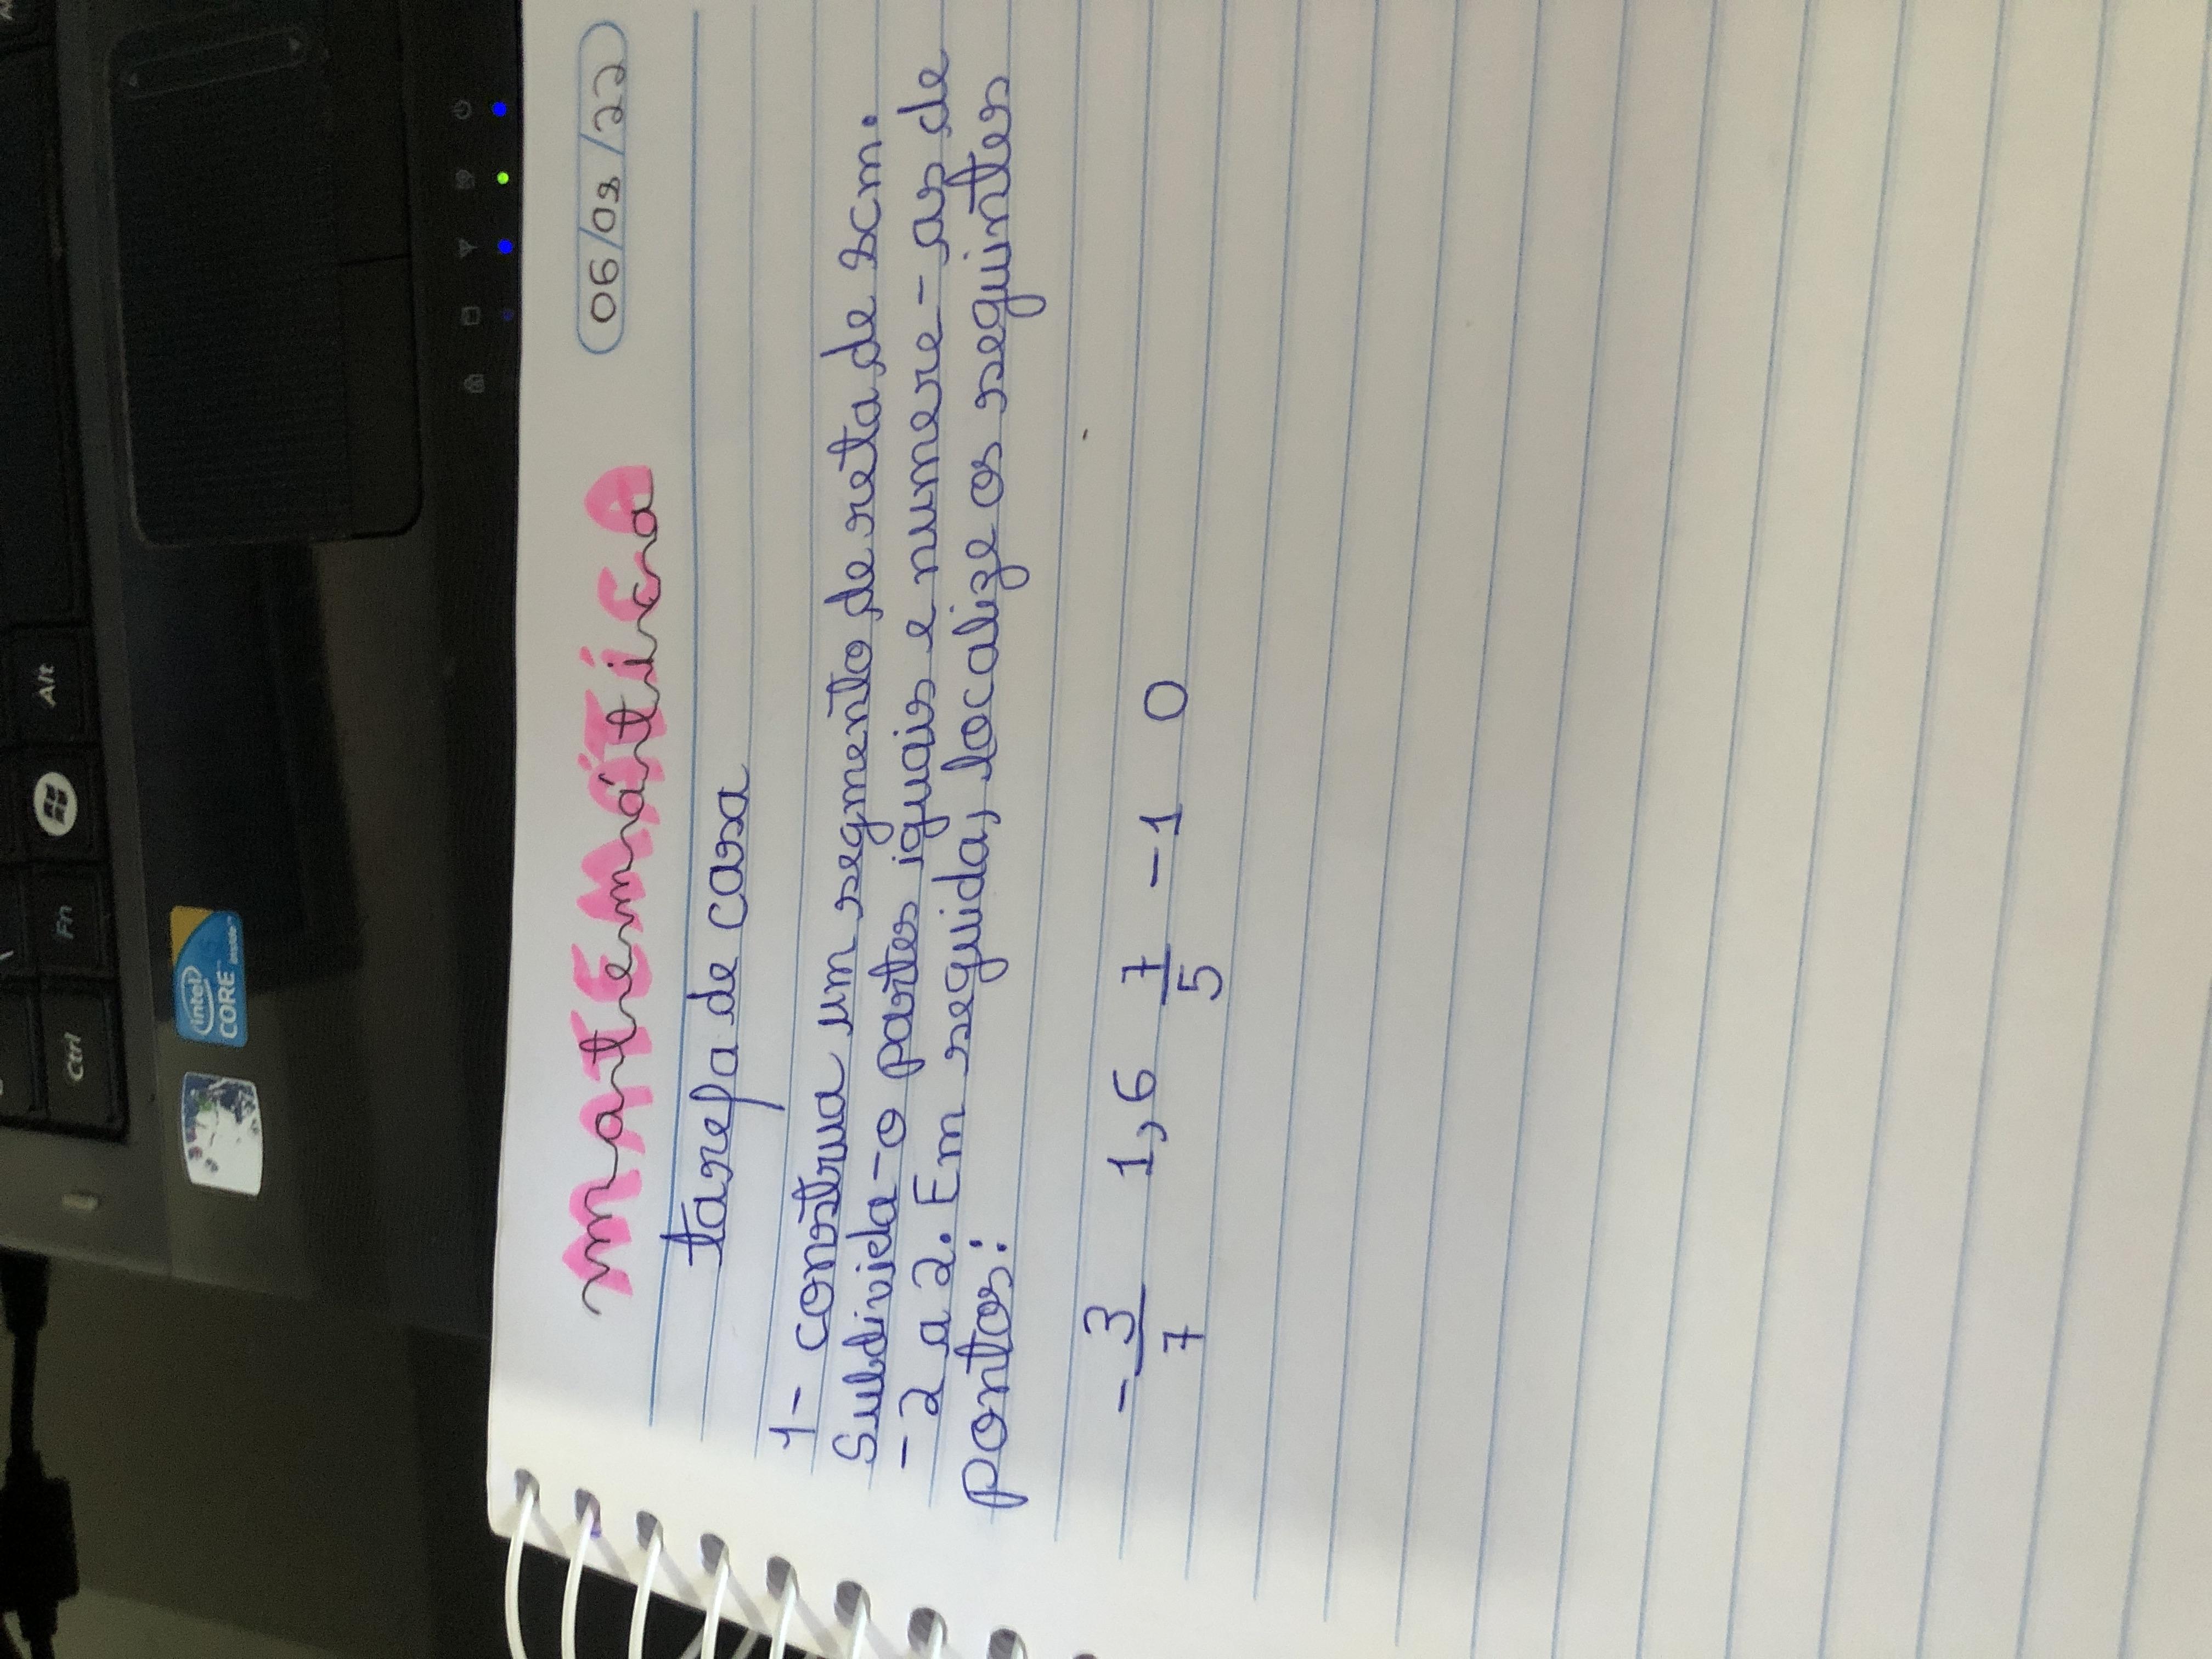 matemática 06/08/22
MATEMÁTICA
tarefa de casa
1- construa um segmento de reta de 8cm.
Subdivida-o partes iguais e numere-as de
-2 a 2. Em seguida, localize os seguintes
pontos:
-3/7 1,6 7/5 -1 0
Ctrl Fn Alt
intel
CORE i5
inside